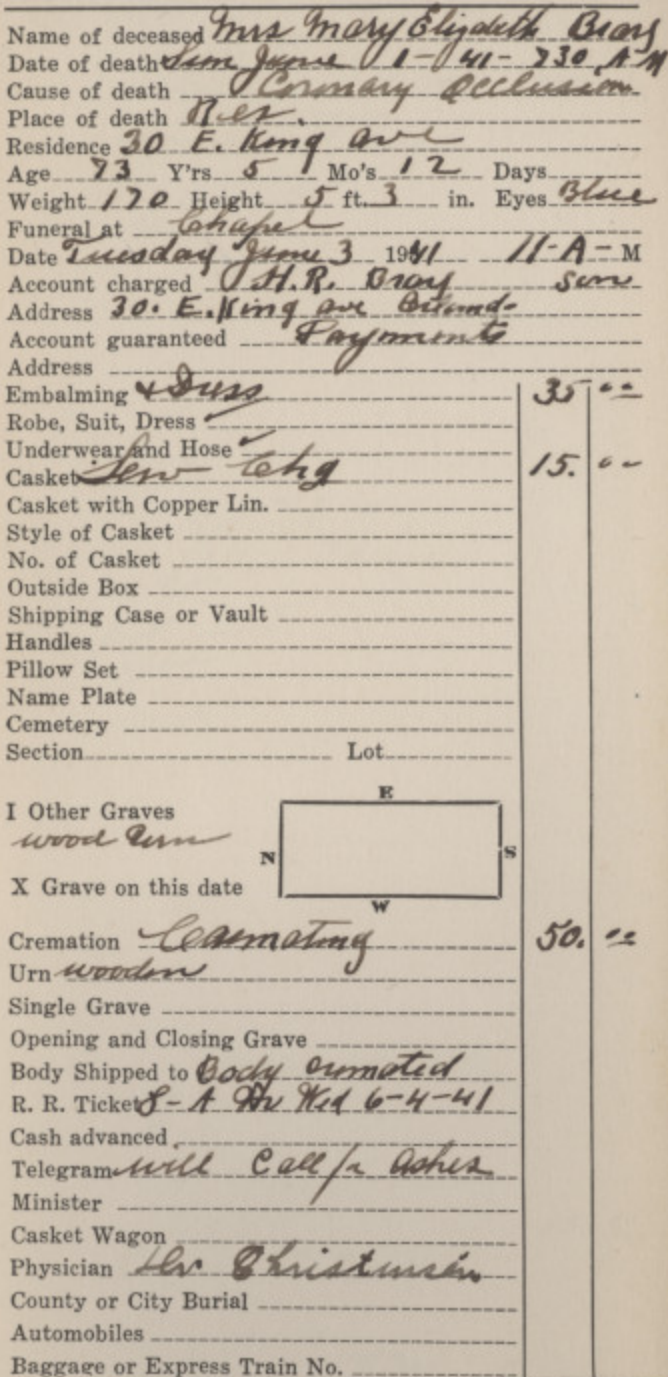 Name of deceased Mrs Mary Elizabeth Bray
Date of death Sun June 1-41-730 A M
Cause of death Coronary Occlusion
Place of death Res.
Residence 30 E. King Ave
Age 73 Y'rs 5 Mo's 12 Days
Weight 170 Height 5 ft. 3 in. Eyes Blue
Funeral at Chapel
Date Tuesday June 3 1941 11-A-M
Account charged H.R. Bray son
Address 30. E. King ave
Account guaranteed Payments
Address
Embalming & Dress 35 00
Robe, Suit, Dress ✓
Underwear and Hose ✓
Casket Serv Chg 15. 00
Casket with Copper Lin.
Style of Casket
No. of Casket
Outside Box
Shipping Case or Vault
Handles
Pillow Set
Name Plate
Cemetery
Section Lot
E
I Other Graves
wood Urn
N S
X Grave on this date
W
Cremation Cremating 50. 00
Urn wooden
Single Grave
Opening and Closing Grave
Body Shipped to Body cremated
R. R. Ticket 8-A Wed 6-4-41
Cash advanced
Telegram will Call for Ashes
Minister
Casket Wagon
Physician Dr Christensen
County or City Burial
Automobiles
Baggage or Express Train No.